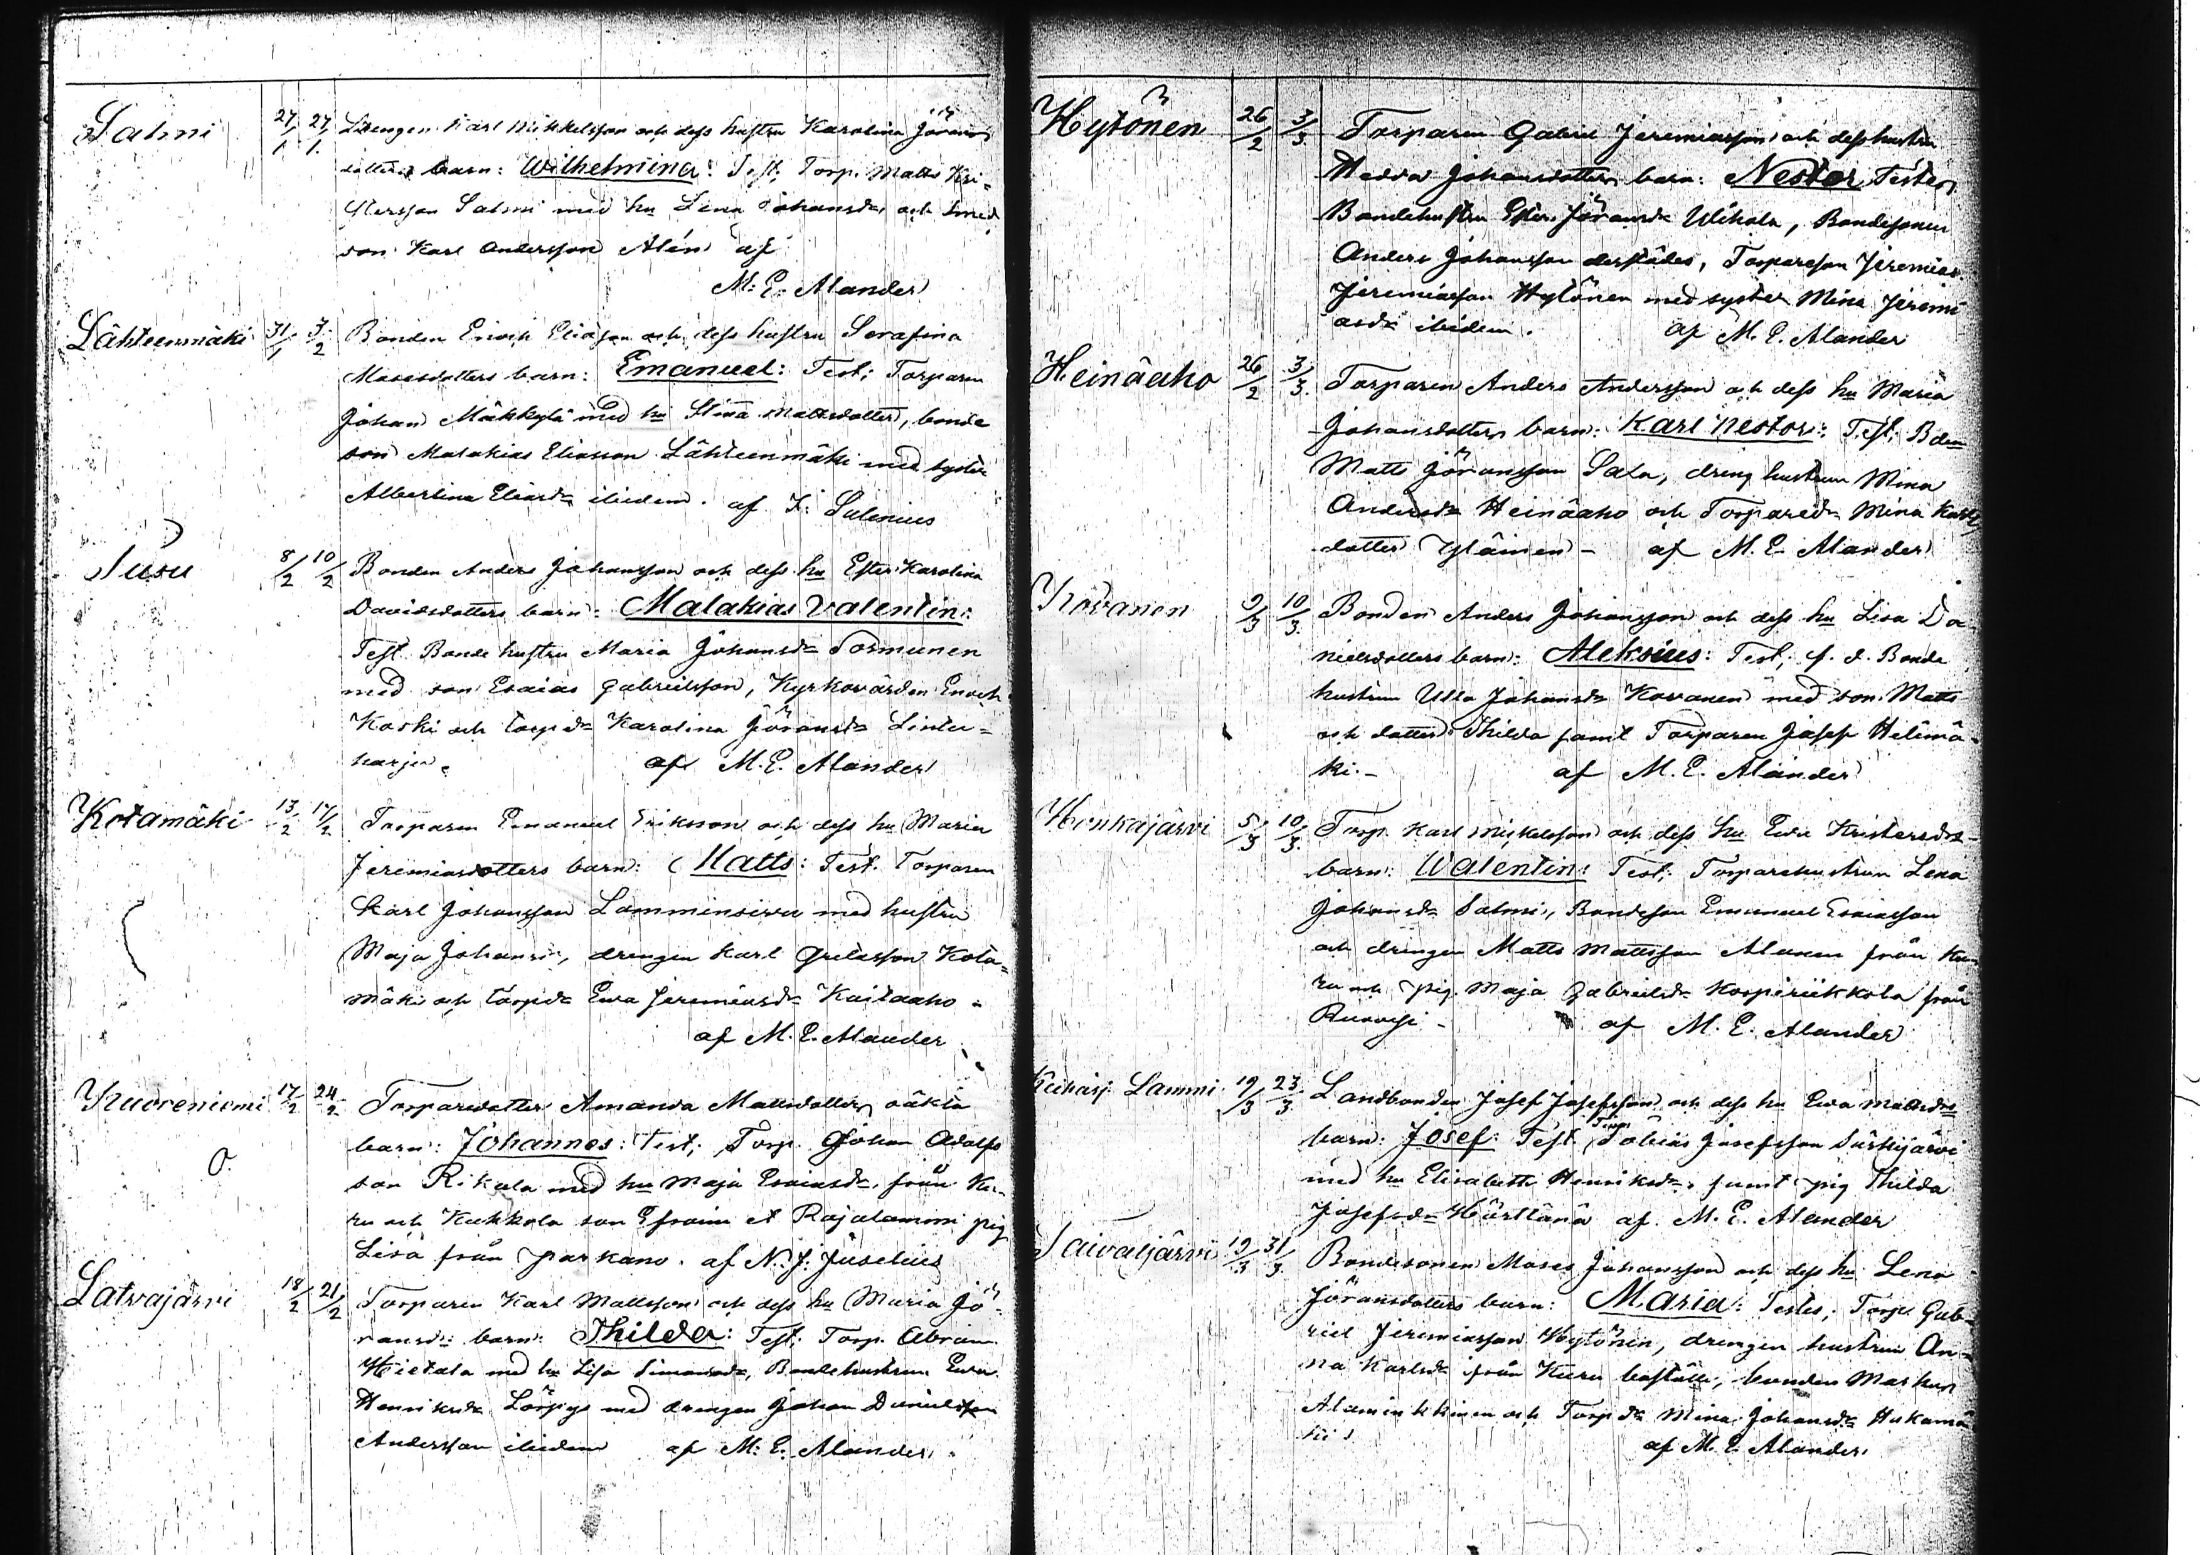 Salmi 27/1 27/1 Drengen Karl Mikkelsson och dess hustru Karolina Jörans
dotters barn: Wilhelmina: Test; Torp. Matts Kri-
stersson Salmi med hu Lena Johansdr och Smed
son Karl Andersson Alén af
M. E. Alander
Lähteenmäki 31/1 3/2 Bonden Enoch Eliasson och dess hustru Serafina
Mosesdotters barn: Emanuel: Test; Torparen
Johan Mäkkylä med hu Stina Mattsdotter, bonde
son Malakias Eliasson Lähteenmäki med syster
Albertina Eliasdr ibidem. af F. Salenius
Susu 8/2 10/2 Bonden Anders Johansson och dess hu Ester Karolina
Davidsdotters barn: Malakias Valentin:
Test. Bonde hustru Maria Johansdr Sormunen
med son Esaias Gabrielsson, Kyrkovärden Enoch
Koski och torpdr Karolina Göransdr Lintu-
harju. af M. E. Alander
Kotamäki 13/2 17/2 Torparen Emanuel Eriksson och dess hu Maria
Jeremiasdotters barn: Matts: Test. Torparen
Karl Johansson Lamminsivu med hustru
Maja Johansdr, drengen Karl Grelsson Kota-
mäki och torpdr Ewa Jeremiasdr Kaitaaho
af M. E. Alander
Kuoreniemi 17/2 24/2 Torparedotter Amanda Mattsdotters oäkta
barn: Johannes: Test; Torp. Johan Adolfs
son Rikala med hu Maja Esaiasdr. från Ku-
ru och Kukkola son Efraim et Rajalammi pig
Lisa från Parkano. af N. J. Juselius
O.
Latvajärvi 18/2 21/2 Torparen Karl Mattsson och dess hu Maria Jö-
ransdr barn: Thilda: Test; Torp. Abram
Hietala med hu Lisa Simonsdr, Bondehustrun Ewa
Henriksdr Löpys med drengen Johan Danielsson
Andersson ibidem af M. E. Alander.
Hytönen 26/2 3/3 Torparen Gabriel Jeremiasson och dess hustru
Hedda Johansdotters barn: Nestor, Testes
Bondehustru Ester Jöransdr Uikola, Bondesonen
Anders Johansson derstädes, Torpareson Jeremias
Jeremiasson Hytönen med syster Mina Jeremi
asdr ibidem. af M. E. Alander
Heinäaho 26/2 3/3 Torparen Anders Andersson och dess hu Maria
Johansdotters barn: Karl Nestor: Test; Bden
Matts Göransson Sala, dreng hustrun Mina
Andersdr Heinäaho och Torparedr Mina Karls
dotter Yläinen - af M. E. Alander
Kovanen 9/3 10/3 Bonden Anders Johansson och dess hu Lisa Da-
nielsdotters barn: Aleksius: Test; f. d. Bonde
hustrun Ulla Johansdr Kovanen med son Matts
och dotter Thilda samt Torparen Josef Helimä-
ki.- af M. E. Alander
Honkajärvi 5/3 10/3 Torp. Karl Mickelsson och dess hu Ewa Kristersdrs
barn: Walentin: Test; Torparehustrun Lena
Johansdr Salmi, Bondeson Emanuel Esaiasson
och drengen Matts Mattsson Alanen från Ku
ru och pig. Maja Gabrielsdr Korpirükkola från
Ruovesi - af M. E. Alander
Kuhasj. Lammi 19/3 23/3 Landbonden Josef Josefsson och dess hu Ewa Mattsdrs
barn: Josef: Test. Torp. Tobias Josefsson Särkijärvi
med hu Elisabeth Henriksdr. samt pig Thilda
Josefsdr Härllänä af. M. E. Alander
Taivaljärvi 19/3 31/3 Bondesonen Moses Johansson och dess hu Lena
Jöransdotters barn: Maria: Testes; Torp. Gab-
riel Jeremiasson Hytönen, drengen hustrun An-
na Karlsdr från Kuru, bonden Markus
Alaminkkinen och Torpdr Mina Johansdr Hakamä
ki. af M. E. Alander.